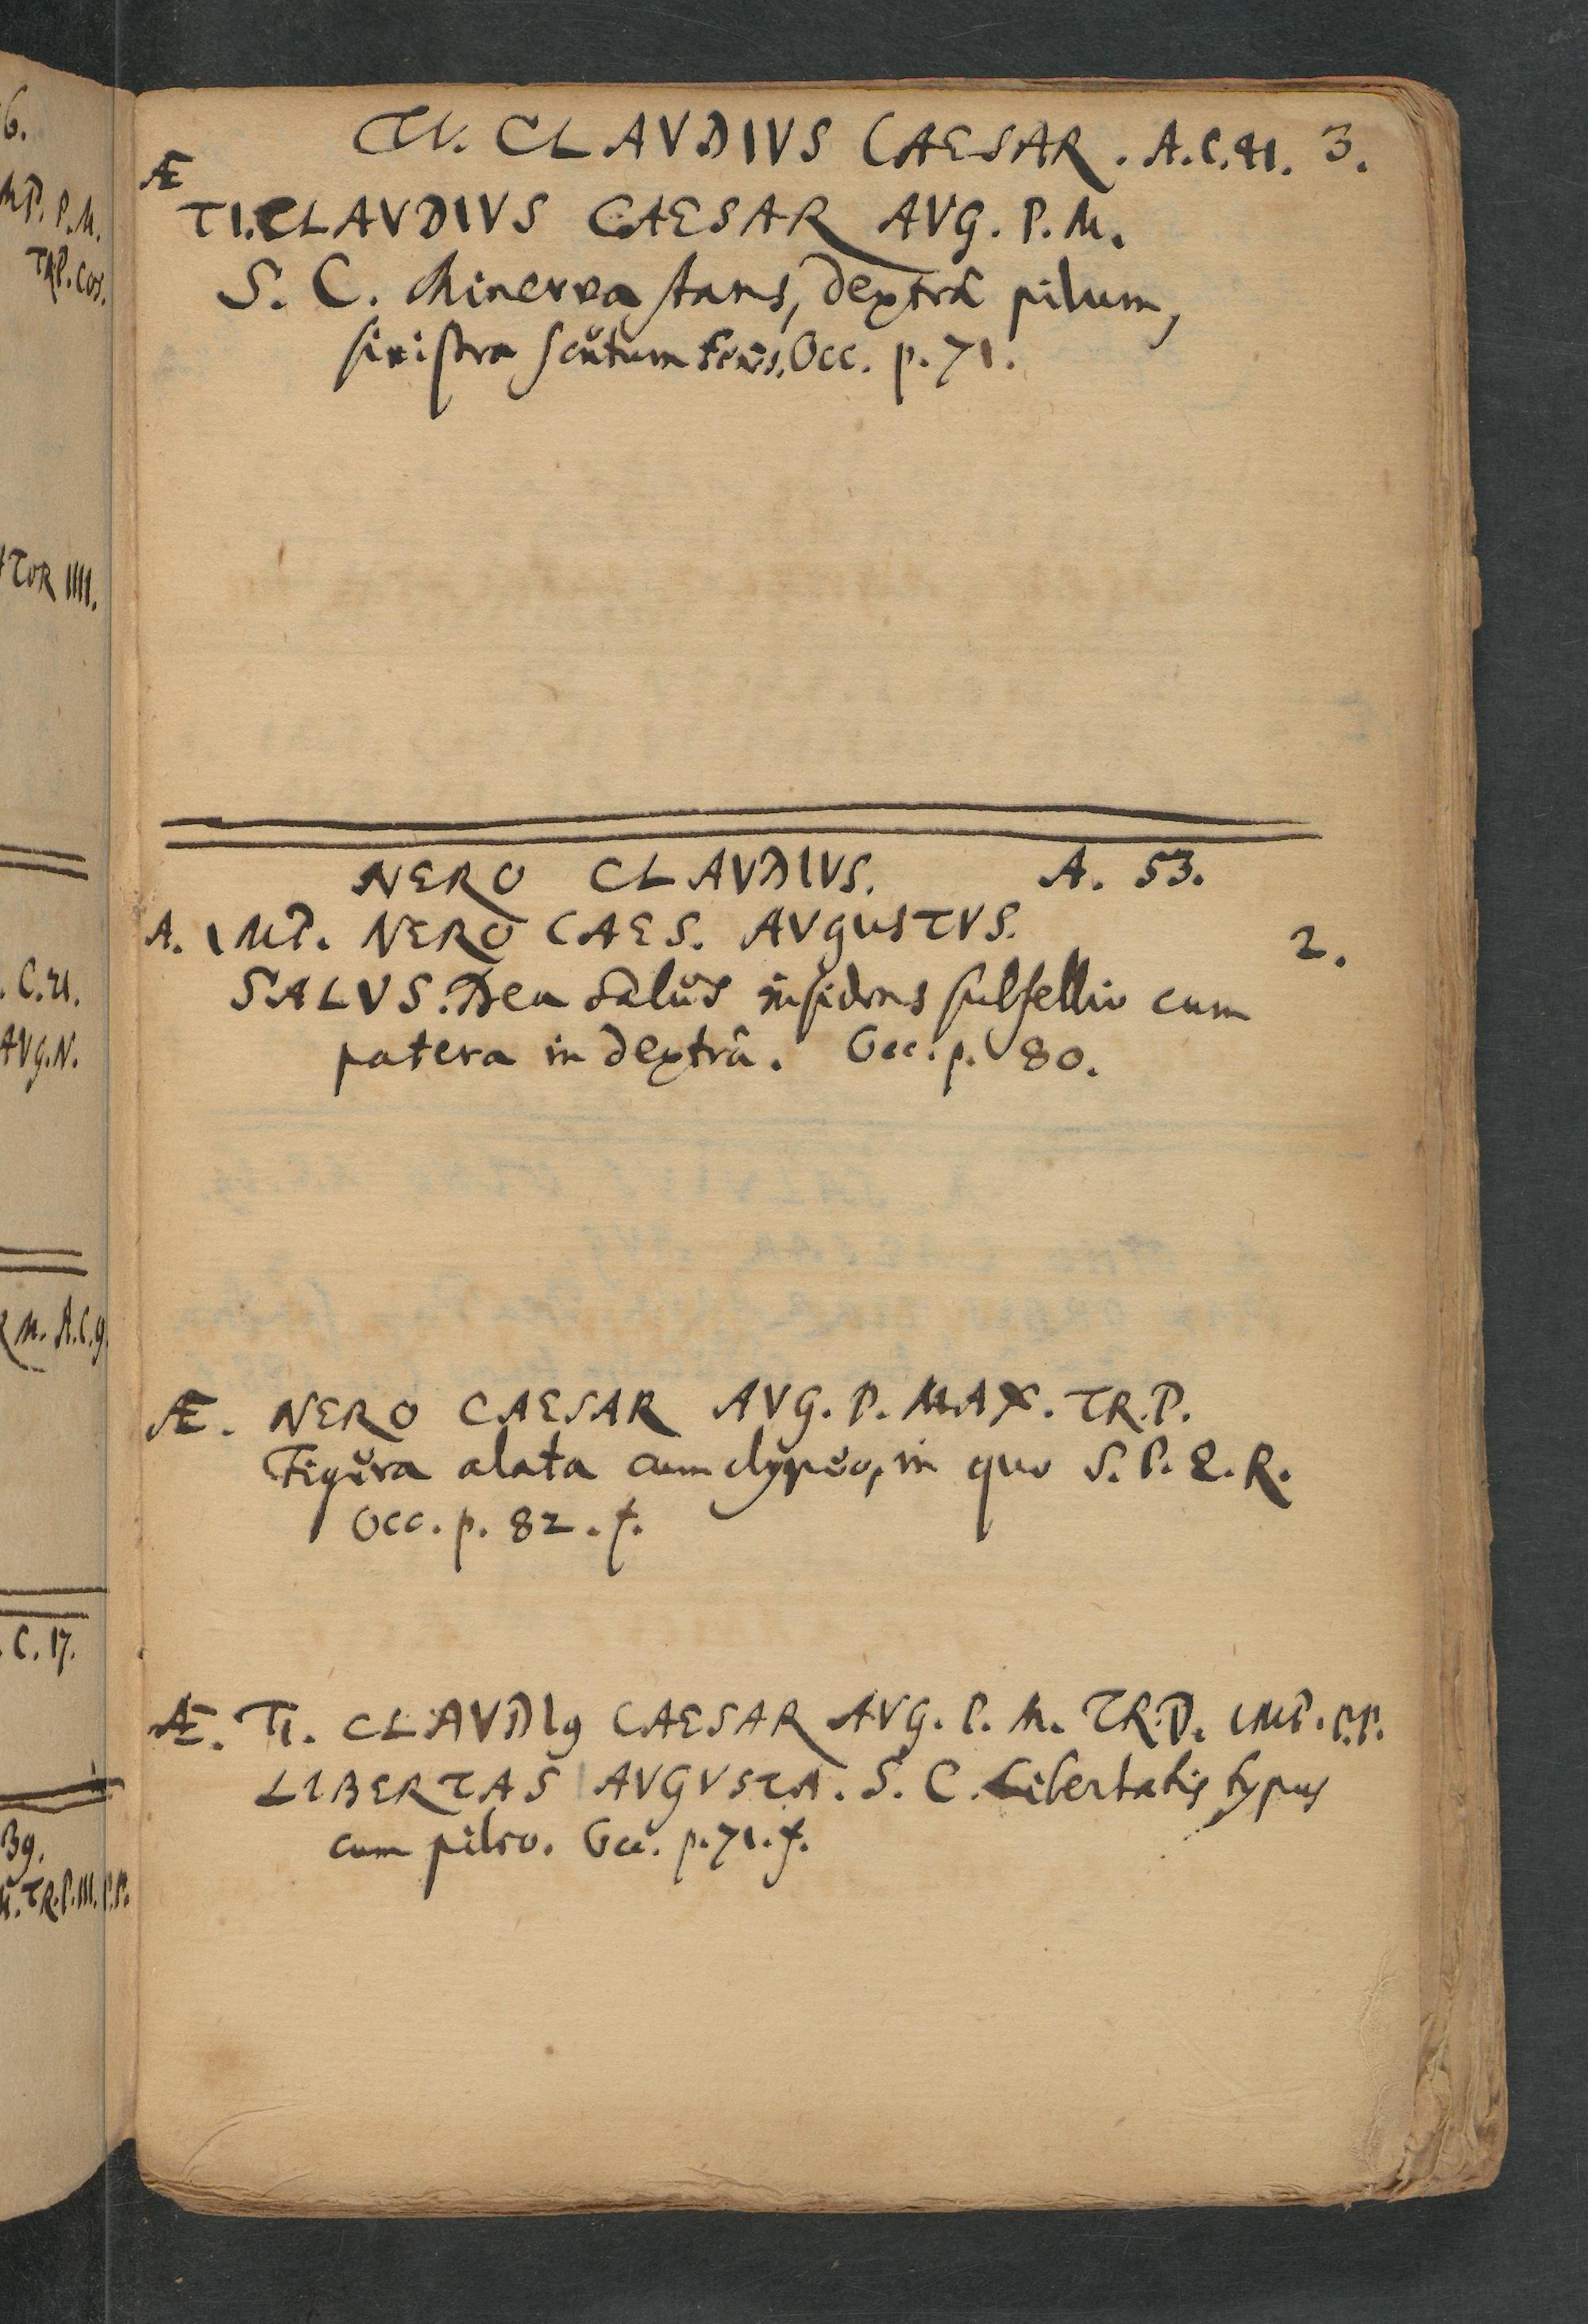 6.
MP. P.M.
TRP. COS.
TOR IIII.
. C. 21.
AVG. N.
R M. A.C. 9
. C. 17.
39.
M. TR.P. III. P.P.
TI. CLAVDIVS CAESAR. A.C. 41. 3.
Æ
TI. CLAVDIVS CAESAR AVG. P. M.
S. C. Minerva stans, dextrâ pilum,
sinistra scŭtum Occ. p. 71.
NERO CLAVDIVS. A. 53.
A. IMP. NERO CAES. AVGUSTVS. 2.
SALVS. Dea Salŭs insidens subsellio cum
patera in dextrâ. Occ. p. 80.
Æ. NERO CAESAR AVG. P. MAX. TR. P.
Figŭra alata cum clypeo, in quo S. P. Q. R.
Occ. p. 82. f.
Æ. TI. CLAVDI9 CAESAR AVG. P. M. TR. P. IMP. P.P.
LIBERTAS AVGVSTA. S. C. Libertatis typus
cum pileo. Occ. p. 71. f.